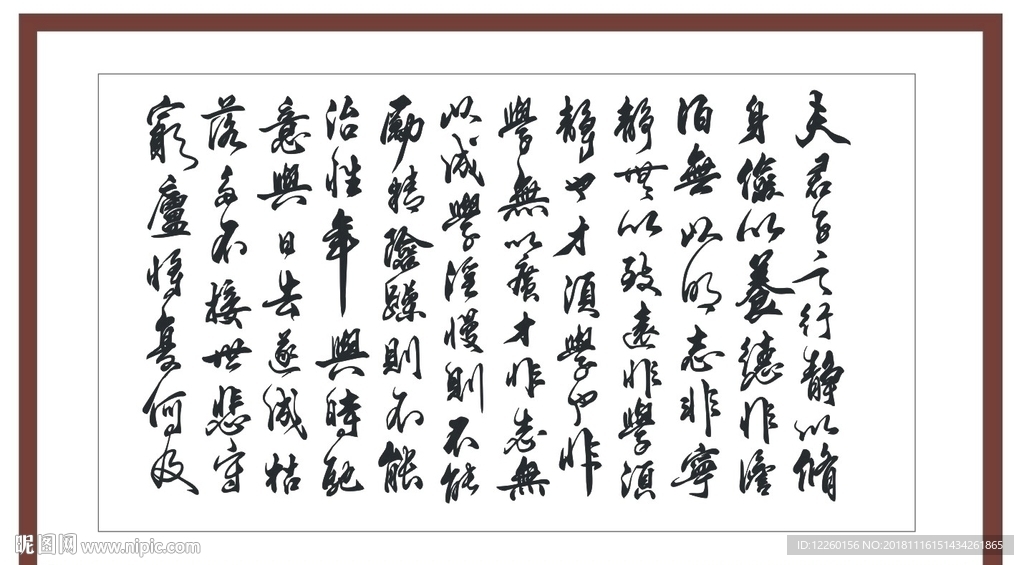 夫君子之行静以脩
身儉以養德非澹
泊無以明志非寧
静無以致遠非學須
静也才須學也非
學無以廣才非志無
以成學淫慢則不能
勵精險躁則不能
治性年與時馳
意與日去遂成枯
落多不接世悲守
窮廬將復何及
昵图网 www.nipic.com
ID:12260156 NO:20181116151434261865